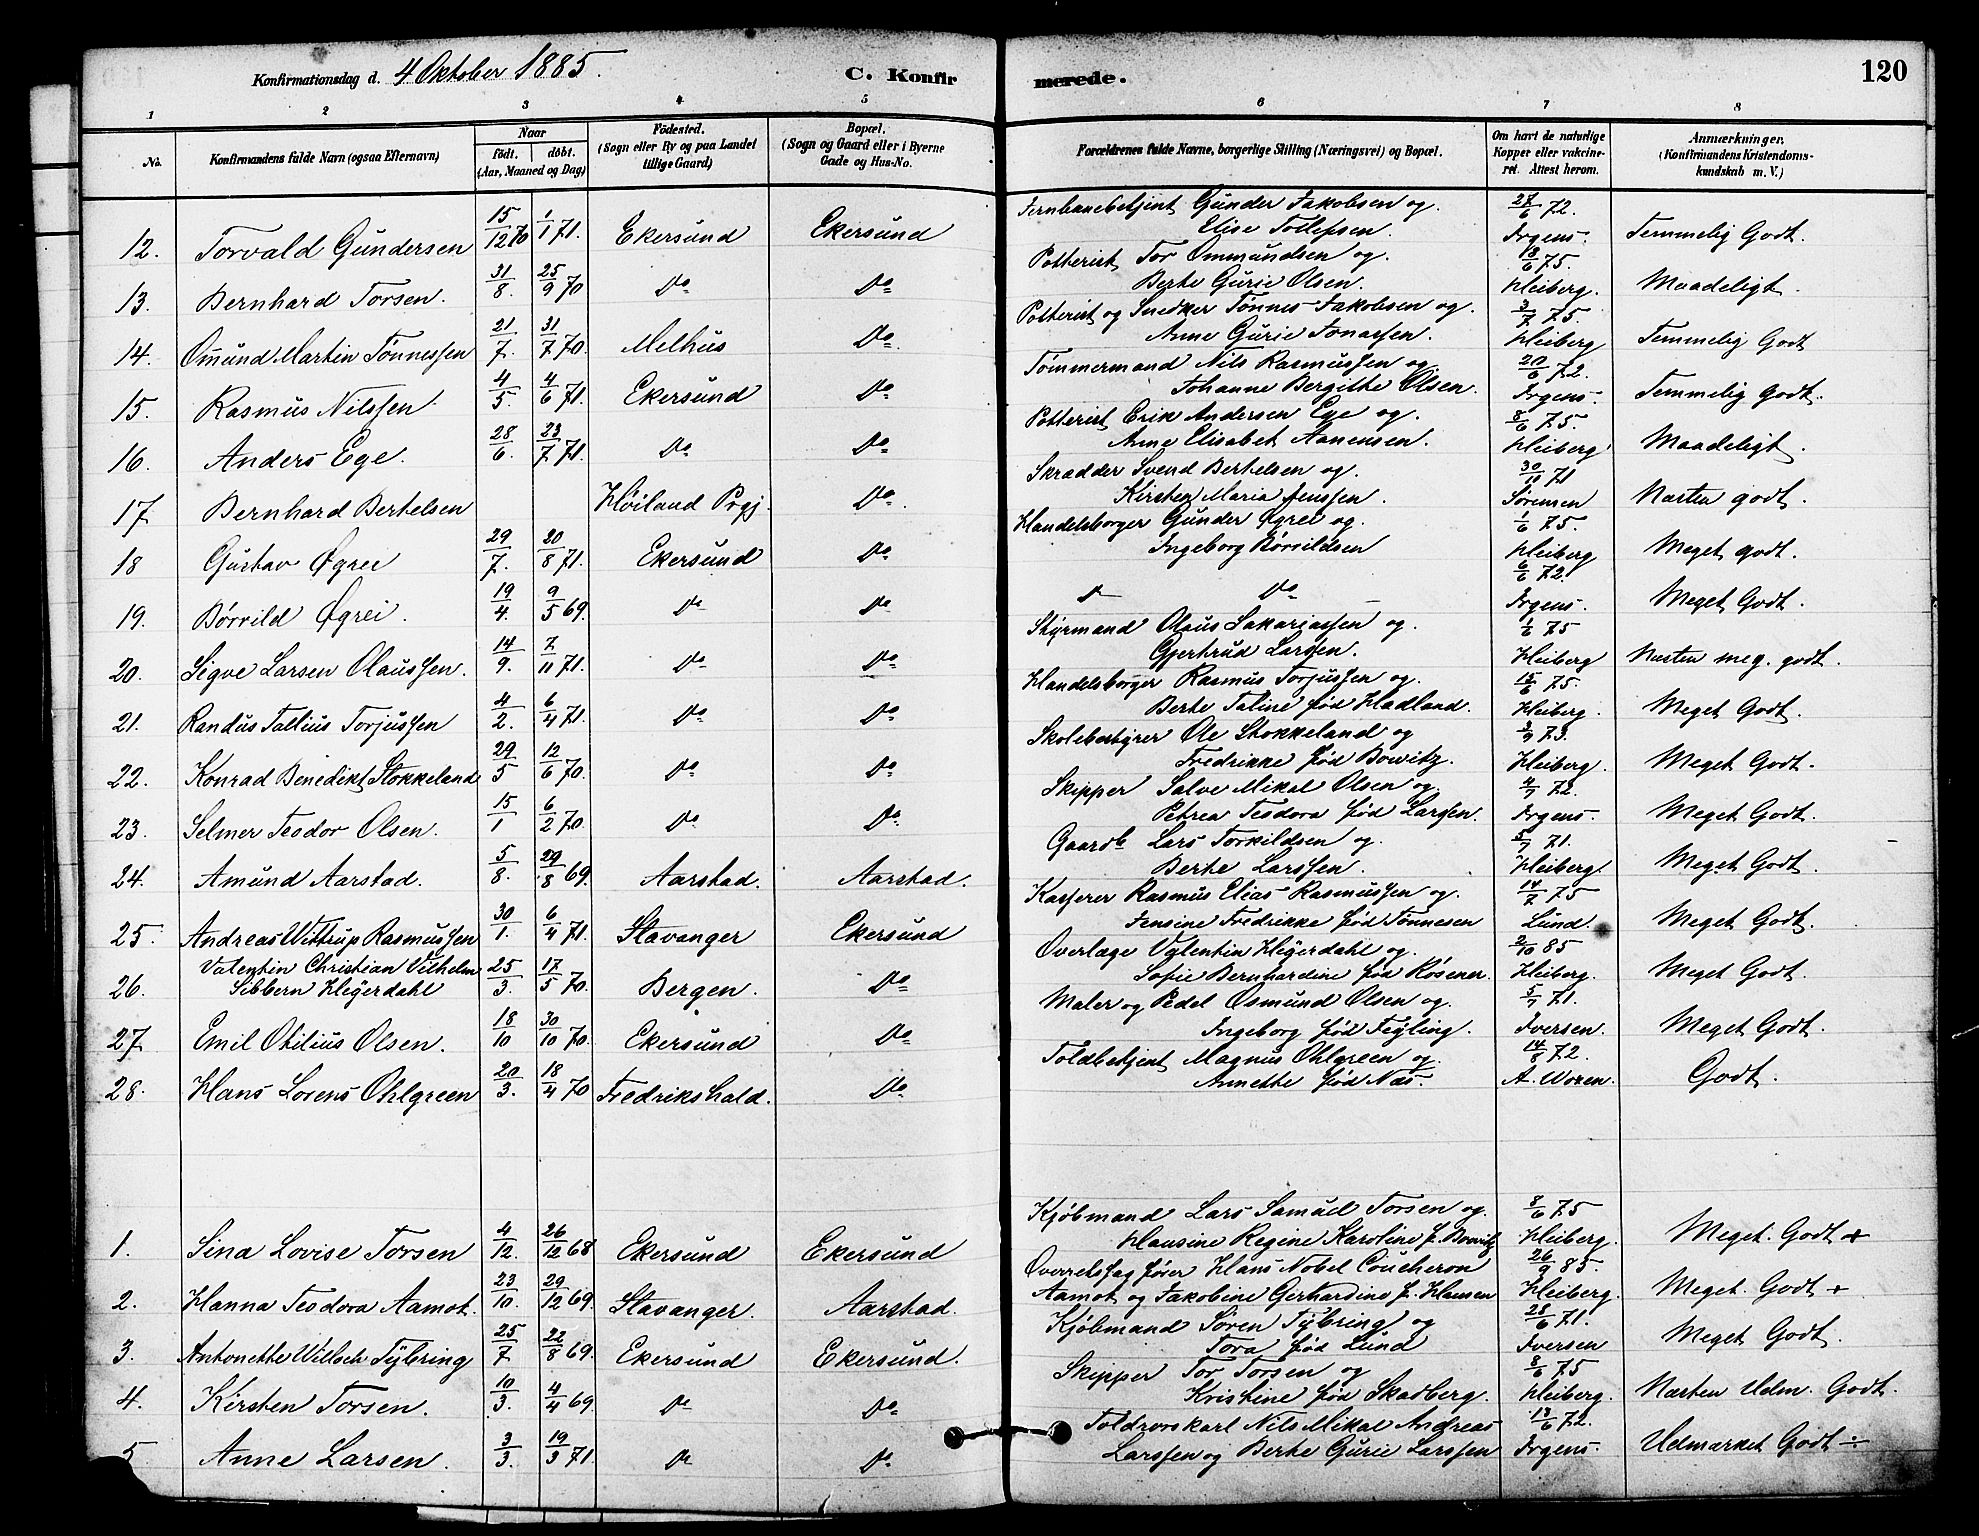 Konfirmationsdag d. 4 Oktober 1885. C. Konfirmerede. 120
1 2 3 4 5 6 7 8
No. Konfirmandens fulde Navn (ogsaa Efternavn) Naar födt. döbt. (Aar, Maaned og Dag) Födested. (Sogn eller By og paa Landet tillige Gaard) Bopæl. (Sogn og Gaard eller i Byerne Gade og Hus-No. Forældrenes fulde Navne, borgerlige Stilling (Næringsvei) og Bopæl. Om havt de naturlige Kopper eller vakcineret. Attest herom. Anmærkninger. (Konfirmandens Kristendomskundskab m. V.)
12. Torvald Gundersen 15/12 70 1/1 71. Ekersund Ekersund Jernbanebetjent Gunder Jakobsen og Elise Tollefsen. 27/6 72. Irgens. Temmelig Godt.
13. Bernhard Torsen. 31/8. 25/9 70 Do Do Potterist Tor Ommundsen og Berte Gurie Olsen. 18/6 75. Heiberg. Maadeligt.
14. Omund Martin Tønnessen 21/7. 31/7 70. Melhus Do Potterist og Snedker Tønnes Jakobsen og Anne Gurie Jonassen. 3/7 75 Heiberg Temmelig Godt
15. Rasmus Nilssen 4/5. 4/6 71. Ekersund Do Tømmermand Nils Rasmussen og Johanne Bergitte Olsen. 20/6 72. Irgens. Temmelig Godt.
16. Anders Ege. 28/6. 23/7 71. Do Do Potterist Erik Andersen Ege og Anne Elisabet Aanensen. 8/6 75. Heiberg Maadeligt.
17 Bernhard Bertelsen Høiland Prgj. Do Skrædder Svend Bertelsen og Kirsten Maria Jenssen. 30/11 71 Sörensen Næsten godt.
18 Gustav Øgrei 29/7. 20/8 71. Ekersund Do Handelsborger Gunder Øgrei og Ingeborg Børvildsen 1/6 75. Heiberg Meget godt.
19. Børvild Øgrei. 19/4. 9/5 69. Do Do Do Do 6/6 72. Irgens. Meget Godt.
20. Sigve Larsen Olaussen. 14/9. 7/11 71. Do Do Styrmand Olaus Sakariassen og Gjertrud Larsen. 1/6 75 Heiberg Næsten meg. godt.
21. Randus Tallius Torjussen 4/2. 6/4 71. Do Do Handelsborger Rasmus Torjussen og Berte Taline fød Hadland. 15/6 75. Heiberg. Meget Godt.
22. Konrad Benedikt Stokkeland 29/5 12/6 70. Do Do Skolebestyrer Ole Stokkeland og Fredrikke fød Bowitz. 3/9 73. Heiberg. Meget Godt.
23. Selmer Teodor Olsen. 15/1 6/2 70. Do Do Skipper Salve Mikal Olsen og Petrea Teodora fød Larsen. 4/7 72. Irgens. Meget Godt.
24. Amund Aarstad. 5/8. 29/8 69. Aarstad. Aarstad. Gaardb Lars Torkildsen og Berte Larssen. 5/7 71. Heiberg. Meget Godt.
25. Andreas Wittrup Rasmussen 30/1. 6/4 71. Stavanger Ekersund Kasserer Rasmus Elias Rasmussen og Jensine Fredrikke fød Tønnesen 14/7 75 Lund. Meget Godt.
26. Valentin Christian Vilhelm Sibbern Hejerdahl 25/3. 17/5 70. Bergen. Do Overlæge Valentin Hejerdahl og Sofie Bernhardine fød Rosener. 2/10 85 Heiberg. Meget Godt.
27 Emil Otilius Olsen. 18/10 30/10 70. Ekersund Do Maler og Pedel Osmund Olsen og Ingeborg fød Tejling. 5/7 71. Iversen. Meget Godt.
28. Hans Lorens Ohlgreen 20/3. 18/4 70 Fredrikshald. Do Toldbetjent Magnus Ohlgreen og Annette fød Næs. 14/8 72. A. Woxen. Godt.
1. Sina Lovise Torsen 4/12. 26/12 68 Ekersund Ekersund Kjøbmand Lars Samuel Torsen og Hansine Regine Karoline f. Bowitz 8/6 75 Heiberg. Meget. Godt +
2. Hanna Teodora Aamot. 23/10. 29/12 69. Stavanger. Aarstad. Overretssagfører Hans Nobel Coucheron Aamot og Jakobine Gerhardine f. Hansen 26/9 85. Heiberg. Meget. Godt +
3. Antonette Willoch Tybring 25/7 22/8 69. Ekersund Ekersund. Kjøbmand Søren Tybring og Tora fød Lund 28/6 71. Iversen Meget Godt.
4. Kirsten Torsen. 10/3. 4/4 69. Do Do Skipper Tor Torsen og Kristine fød Skadberg. 8/6 75 Heiberg. Næsten Udm. Godt.
5 Anne Larsen. 3/3. 19/3 71. Do Do Toldrorskarl Nils Mikal Andreas Larssen og Berte Gurie Larssen 13/6 72. Irgens. Udmærket Godt ÷